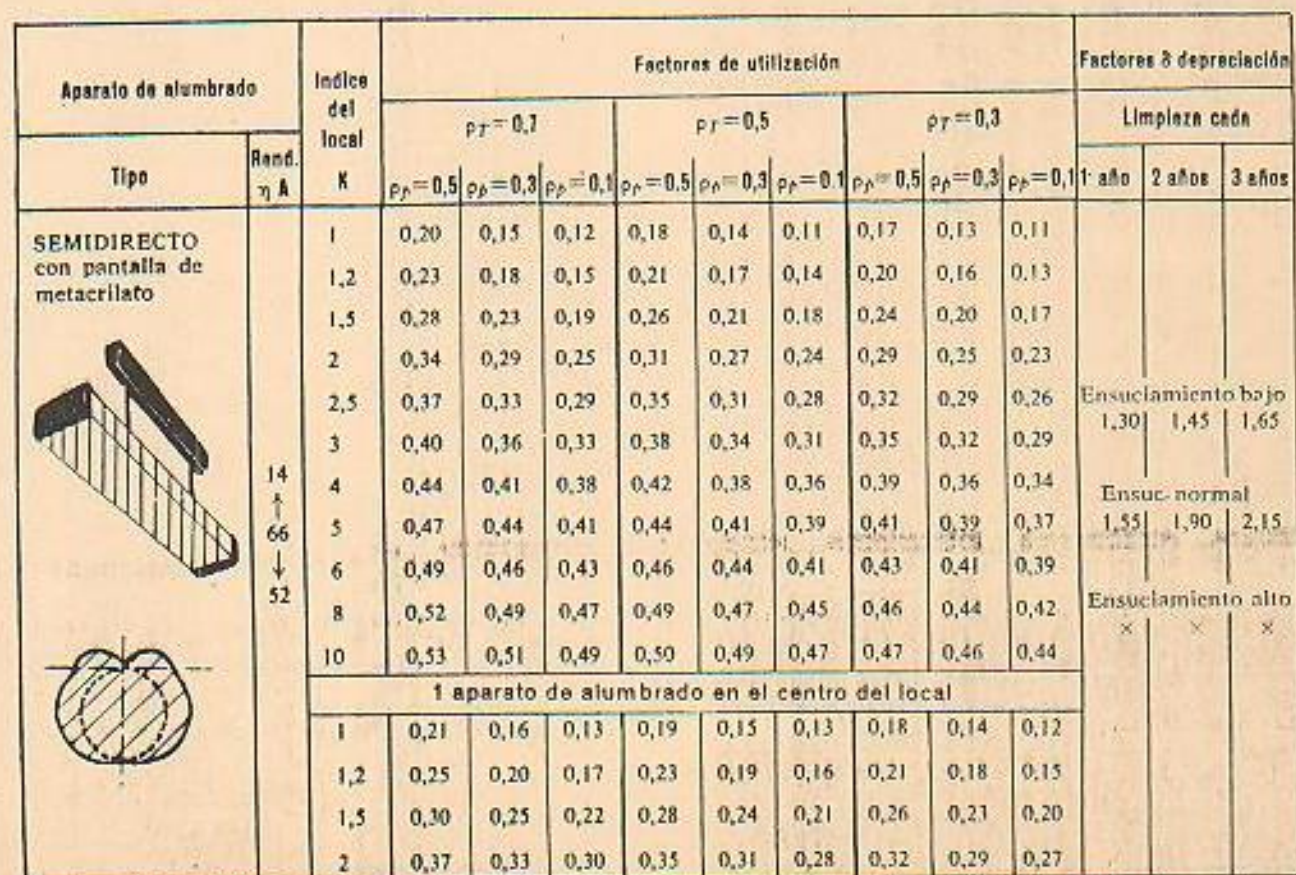 Aparato de alumbrado
Indice del local K
Factores de utilización
Factores δ depreciación
ρT = 0,7 ρT = 0,5 ρT = 0,3
Limpieza cada
Tipo
Rend. η A
ρp = 0,5 ρp = 0,3 ρp = 0,1 ρp = 0,5 ρp = 0,3 ρp = 0.1 ρp = 0,5 ρp = 0,3 ρp = 0,1
1 año 2 años 3 años
SEMIDIRECTO
con pantalla de
metacrilato
14
↑
66
↓
52
1 0,20 0,15 0,12 0,18 0,14 0,11 0,17 0,13 0,11
1,2 0,23 0,18 0,15 0,21 0,17 0,14 0,20 0,16 0,13
1,5 0,28 0,23 0,19 0,26 0,21 0,18 0,24 0,20 0,17
2 0,34 0,29 0,25 0,31 0,27 0,24 0,29 0,25 0,23
2,5 0,37 0,33 0,29 0,35 0,31 0,28 0,32 0,29 0,26
3 0,40 0,36 0,33 0,38 0,34 0,31 0,35 0,32 0,29
4 0,44 0,41 0,38 0,42 0,38 0,36 0,39 0,36 0,34
5 0,47 0,44 0,41 0,44 0,41 0,39 0,41 0,39 0,37
6 0,49 0,46 0,43 0,46 0,44 0,41 0,43 0,41 0,39
8 0,52 0,49 0,47 0,49 0,47 0,45 0,46 0,44 0,42
10 0,53 0,51 0,49 0,50 0,49 0,47 0,47 0,46 0,44
Ensuciamiento bajo
1,30 1,45 1,65
Ensuc. normal
1,55 1,90 2,15
Ensuciamiento alto
× × ×
1 aparato de alumbrado en el centro del local
1 0,21 0,16 0,13 0,19 0,15 0,13 0,18 0,14 0,12
1,2 0,25 0,20 0,17 0,23 0,19 0,16 0,21 0,18 0,15
1,5 0,30 0,25 0,22 0,28 0,24 0,21 0,26 0,23 0,20
2 0,37 0,33 0,30 0,35 0,31 0,28 0,32 0,29 0,27